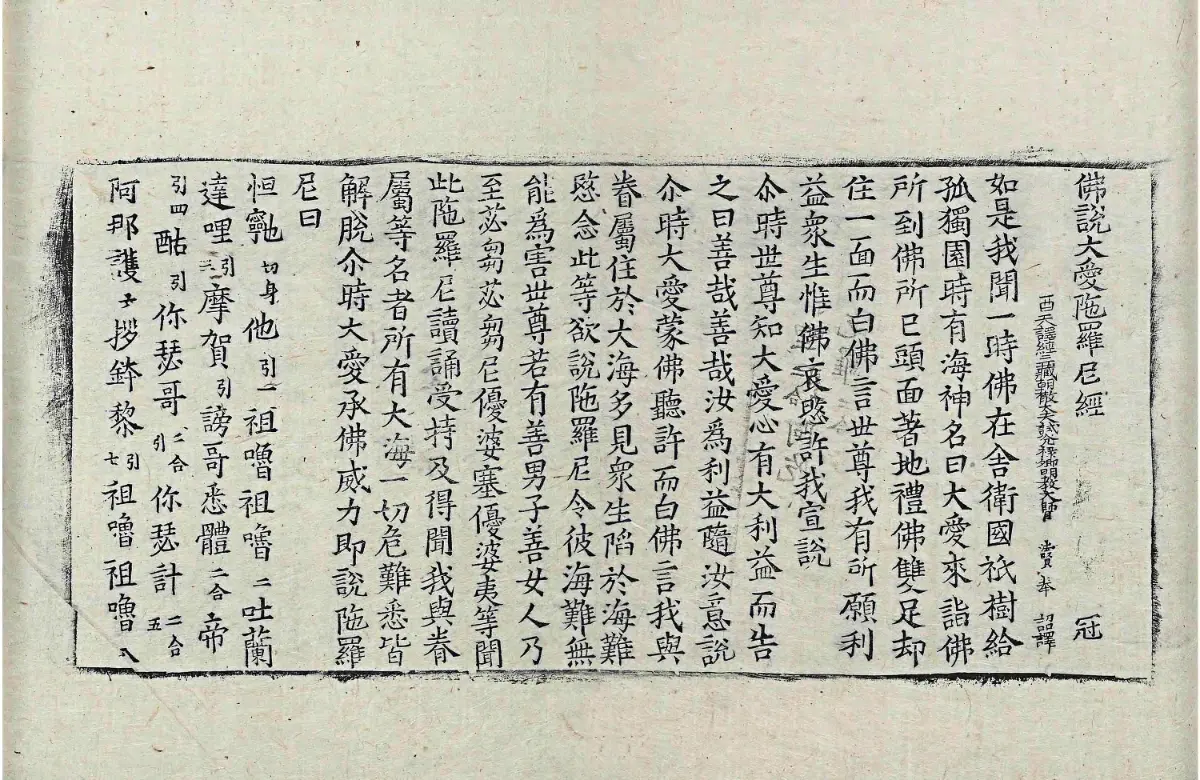 佛說大愛陁羅尼經 冠
西天譯經三藏朝散大夫試光祿卿明教大師 賢 奉 詔譯
如是我聞一時佛在舍衛國祇樹給
孤獨園時有海神名曰大愛來詣佛
所到佛所已頭面著地禮佛雙足却
住一面而白佛言世尊我有所願利
益衆生惟佛哀愍許我宣說
尒時世尊知大愛心有大利益而告
之曰善哉善哉汝爲利益隨汝意說
尒時大愛蒙佛聽許而白佛言我與
眷屬住於大海多見衆生陷於海難
愍念此等欲說陁羅尼令彼海難無
能爲害世尊若有善男子善女人乃
至苾芻苾芻尼優婆塞優婆夷等聞
此陁羅尼讀誦受持及得聞我與眷
屬等名者所有大海一切危難悉皆
解脫尒時大愛承佛威力即說陁羅
尼曰
怛寧也 切身 他 引一 祖嚕祖嚕 二 吐蘭
達哩 引三 摩賀 引 謗哥悉體 二合 帝
引四 酤 引 你瑟哥 二合引 你瑟計 二合五
阿那護 六 拶鉢黎 引七 祖嚕祖嚕 八